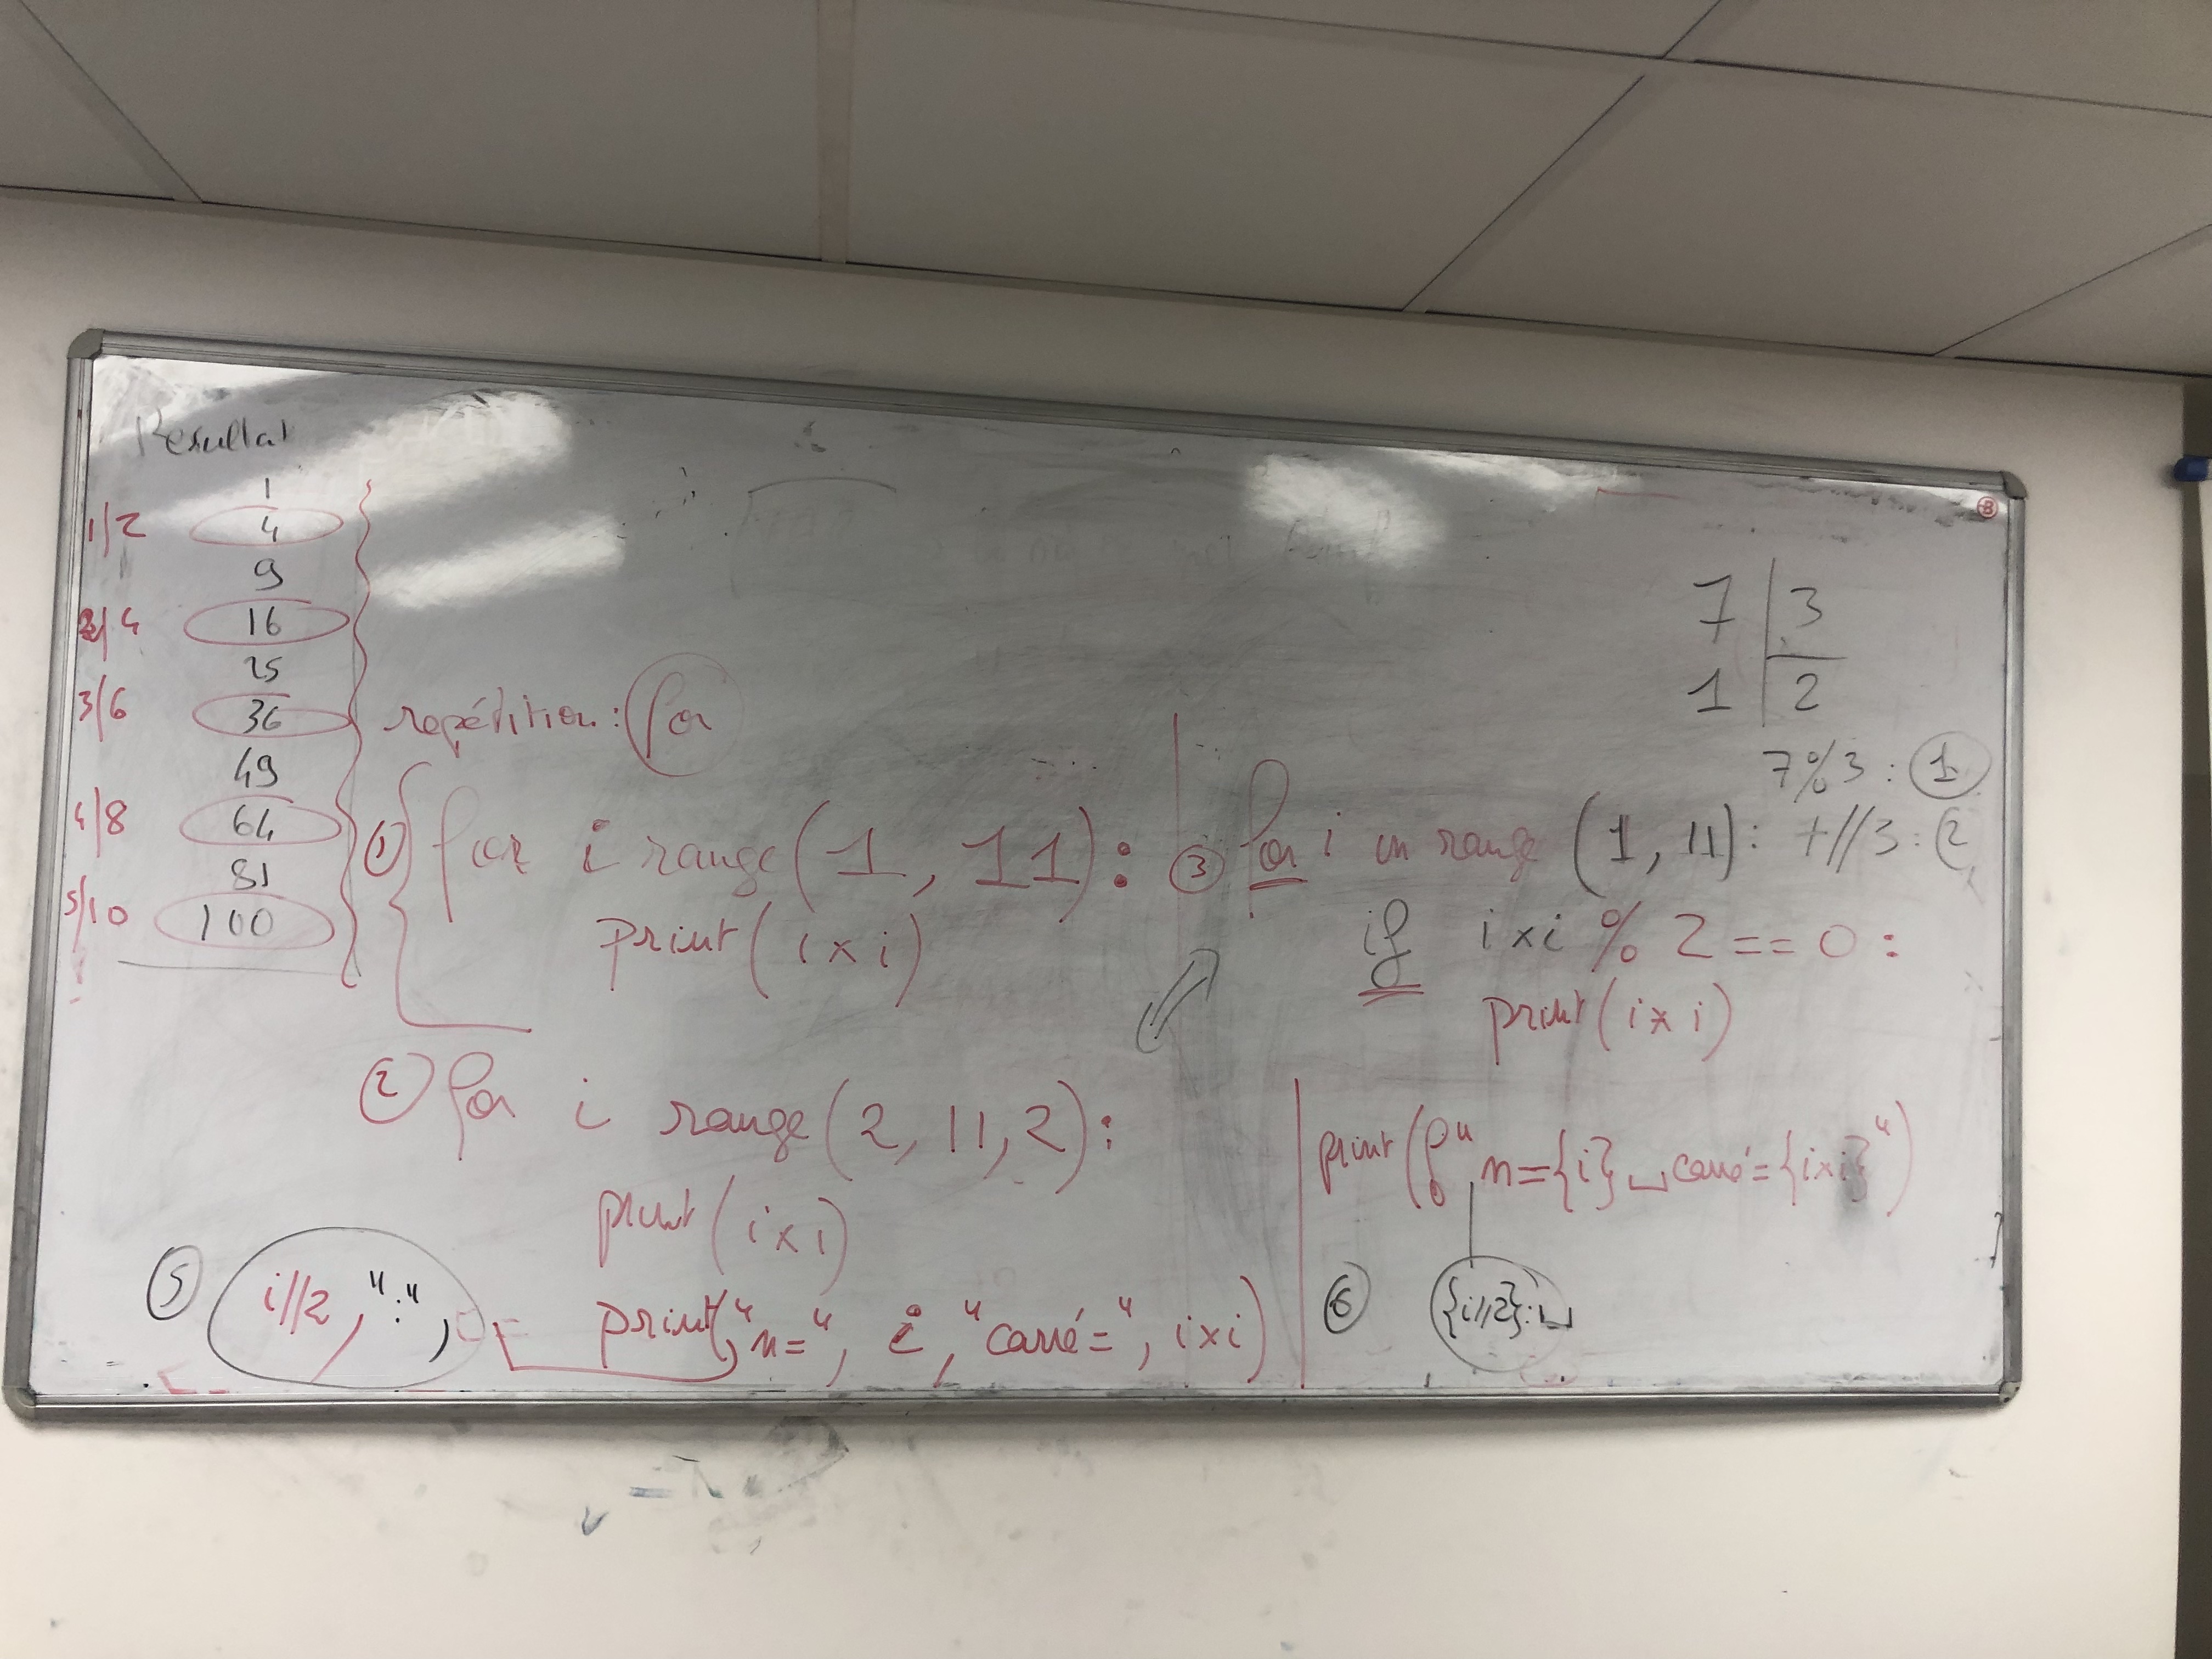 Resultat
1
1/2 4
9
2/4 16
25
3/6 36
49
4/8 64
81
5/10 100
repétition : for
① for i range (1, 11):
print (i x i)
② for i range (2, 11, 2):
print (i x i)
print ("n=", i, "carré=", i x i)
⑤ i//2, ":",
7 | 3
1 | 2
7%3 : 1
7//3 : 2
③ for i in range (1, 11):
if i x i % 2 == 0 :
print (i x i)
print (f"n={i}␣carré={i x i}")
⑥ {i//2}:␣